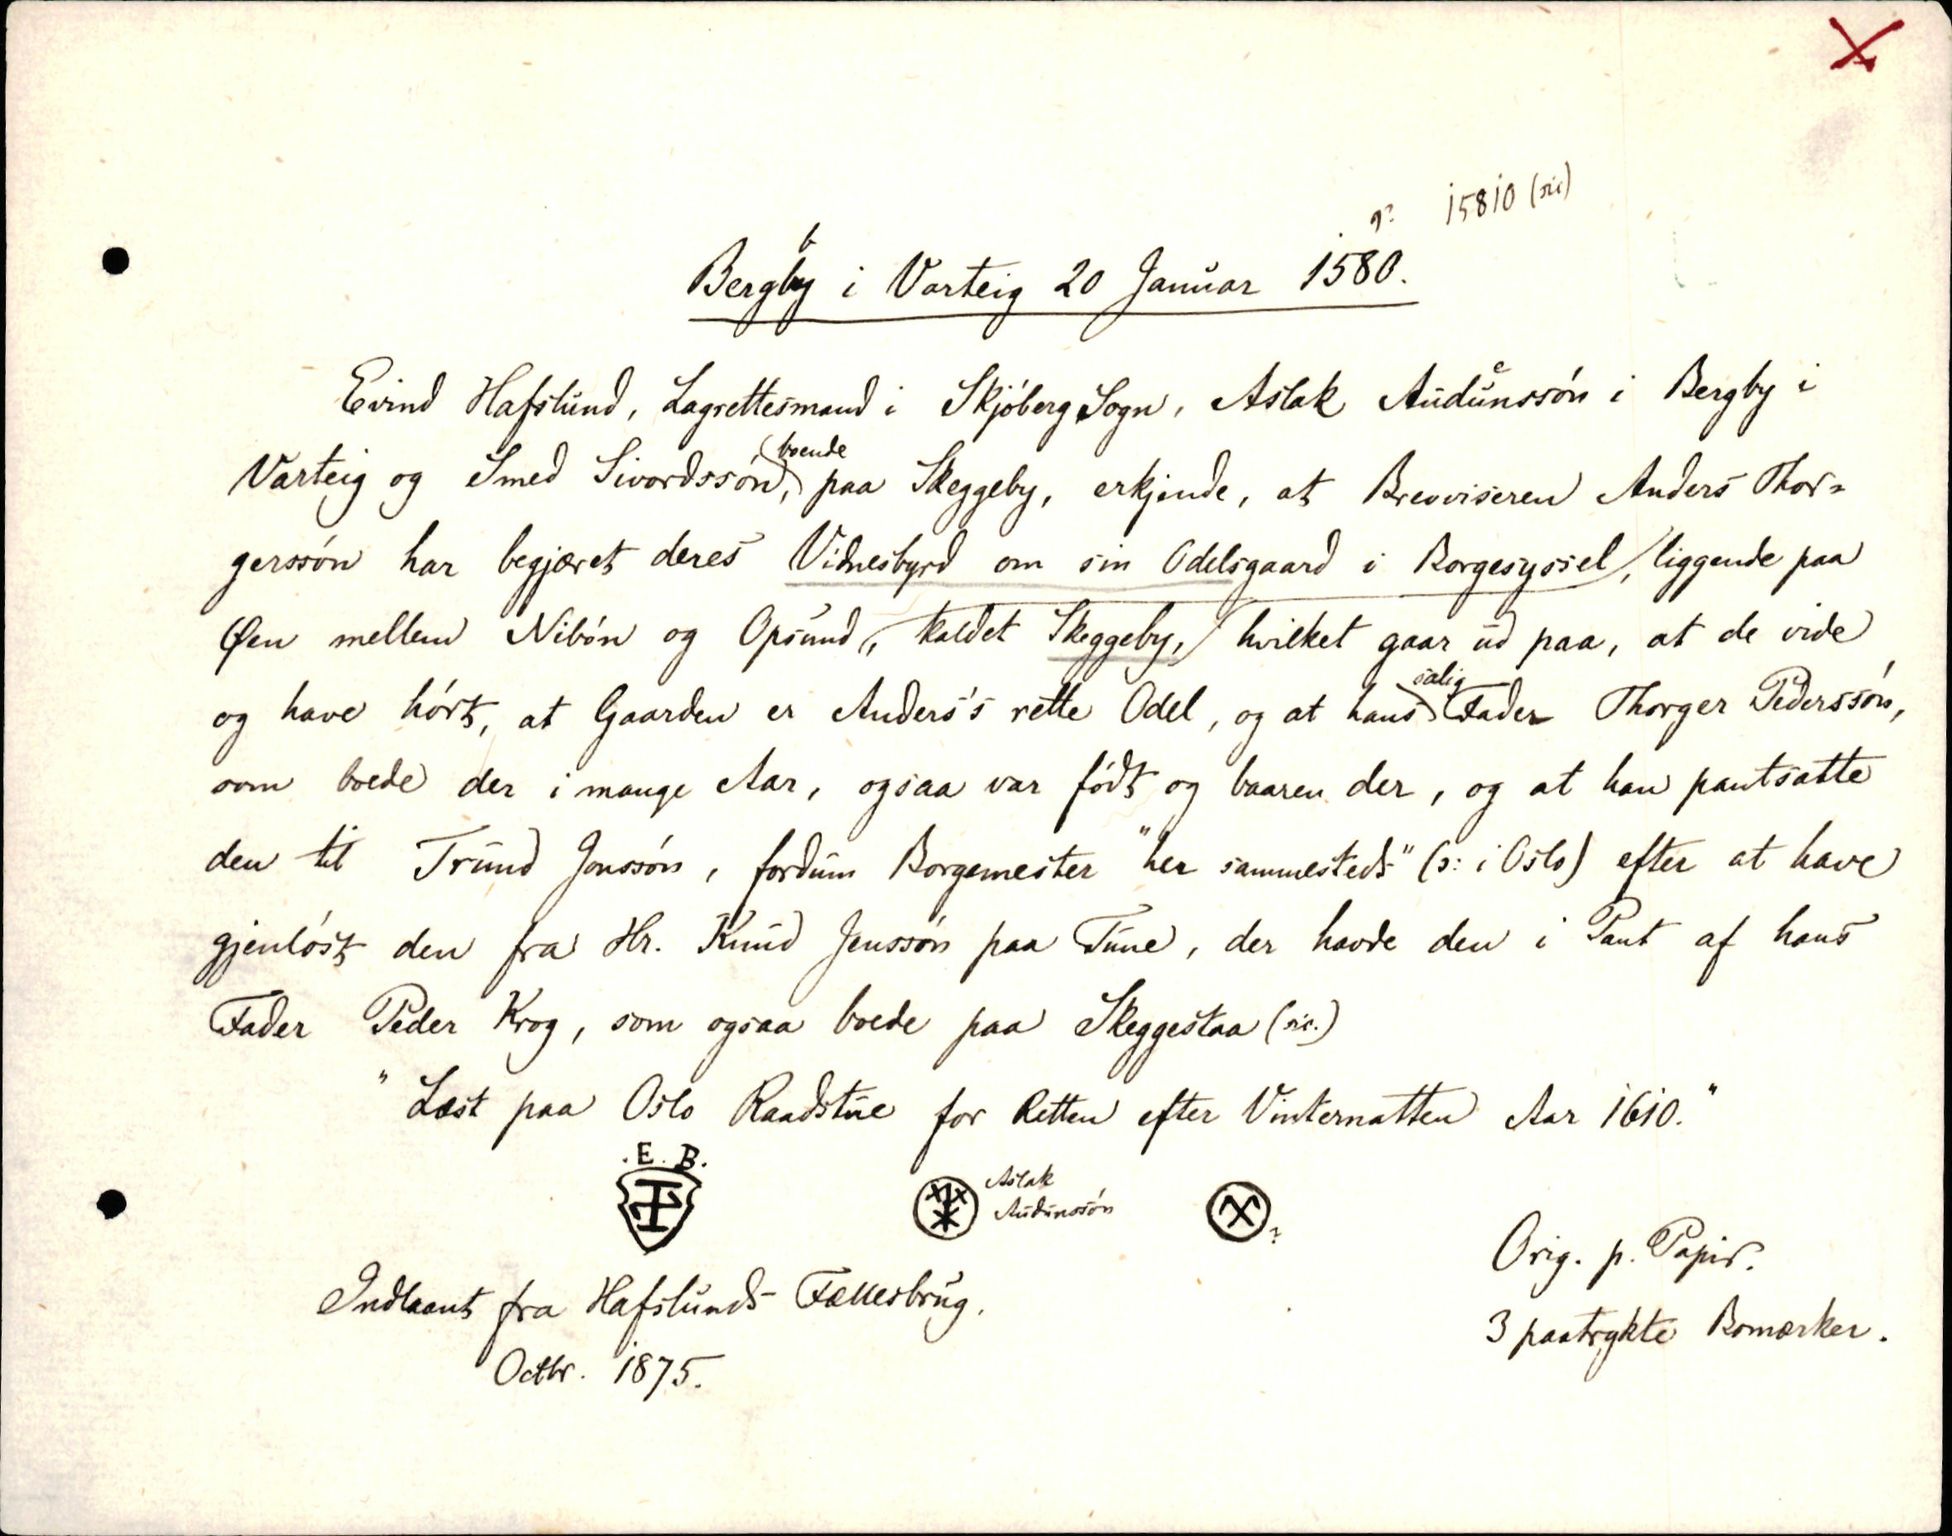 15810 (sic)
9?
Bergby i Varteig 20 Januar 1580.
Evind Hafslund, Lagrettesmand i Skjöberg Sogn, Aslak Audunssön i Bergby i
Varteig og Smed Sivordssön, boende paa Skeggeby, erkjende, at Brevviseren Anders Thor-
gerssön har begjæret deres Vidnesbyrd om sin Odelsgaard i Borgesyssel, liggende paa
Øen mellem Nibön og Opsund, kaldet Skeggeby, hvilket gaar ud paa, at de vide
og have hört, at Gaarden er Anders's rette Odel, og at hans salig Fader Thorger Pederssön,
som boede der i mange Aar, ogsaa var födt og baaren der, og at han pantsatte
den til Trund Jonssön, fordum Borgemester "her sammesteds" (ɔ: i Oslo) efter at have
gjenlöst den fra Hr. Knud Jenssön paa Tune, der havde den i Pant af hans
Fader Peder Krog, som ogsaa boede paa Skeggestaa (sic.)
"Læst paa Oslo Raadstue for Retten efter Vinternatten Aar 1610."
.E. B.
Aslak
Audunssön
?
Orig. p. Papir.
3 paatrykte Bomærker.
Indlaant fra Hafslunds Fællesbrug.
Octbr. 1875.